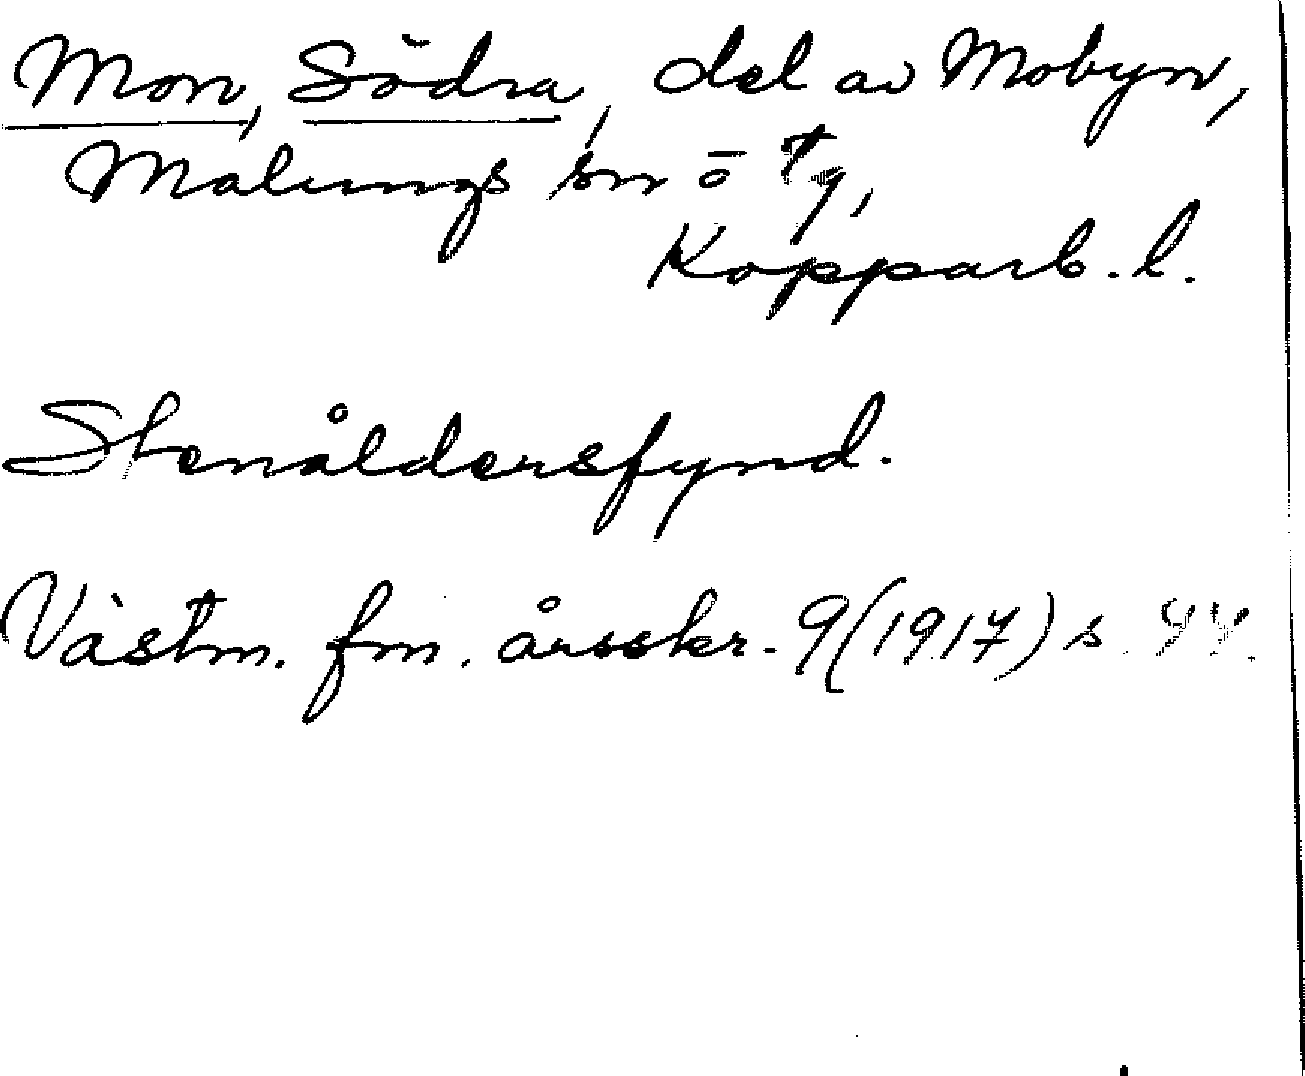 Mon, Södra, del av Mobyn,
Malungs sn o tg,
Kopparb. l.
Stenåldersfynd.
Västm. fm. årsskr. 9 (1917) s. 44.